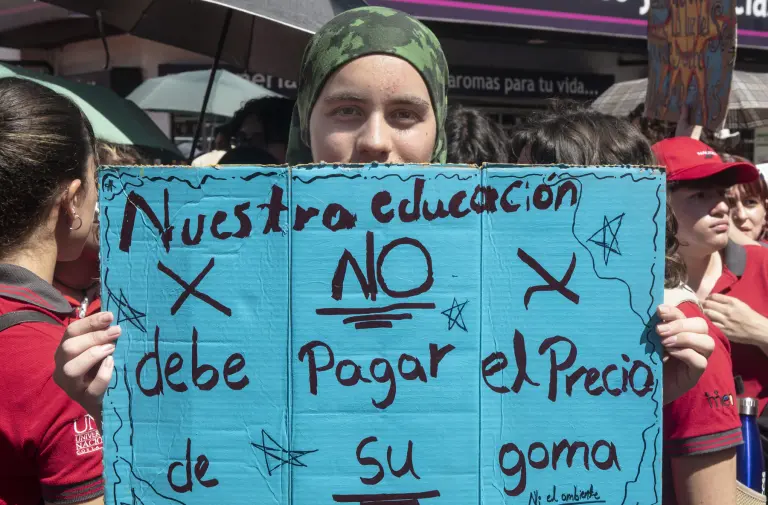 aromas para tu vida...
Nuestra educación
X NO X
debe Pagar el Precio
de su goma
Ni el ambiente